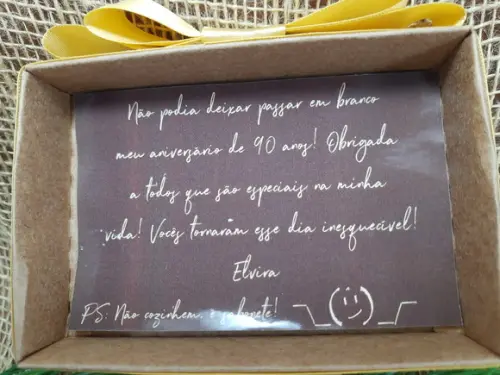 Não podia deixar passar em branco
meu aniversário de 90 anos! Obrigada
a todos que são especiais na minha
vida! Vocês tornaram esse dia inesquecível!
Elvira
PS: Não cozinhem, é sabonete! ¯\_(ツ)_/¯